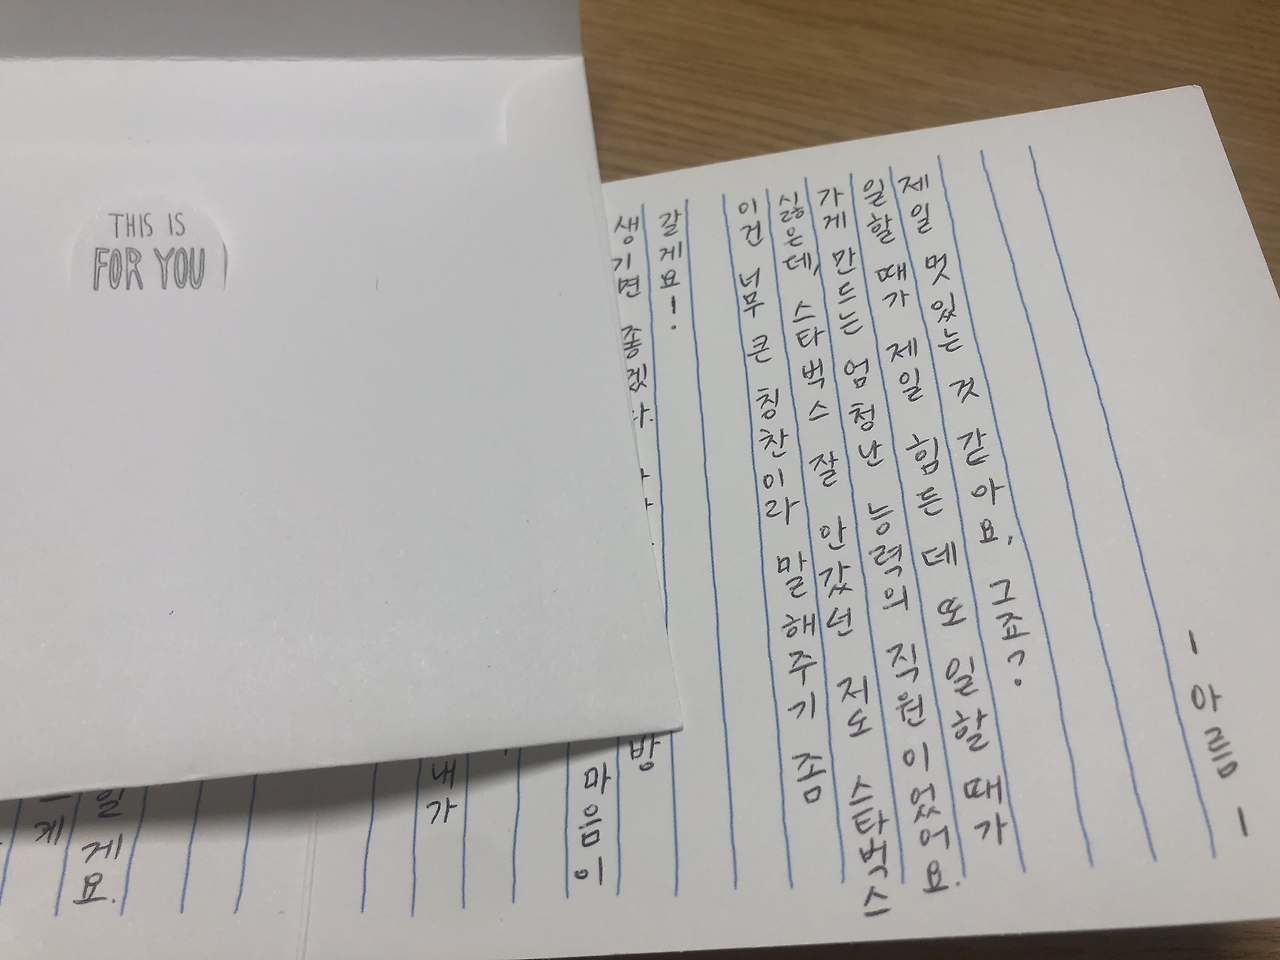 THIS IS
FOR YOU
게
일게요.
내가
마음이
생기면 좋겠다. 방
갈게요!
이건 너무 큰 칭찬이라 말해주기 좀
싫은데, 스타벅스 잘 안갔던 저도 스타벅스
가게 만드는 엄청난 능력의 직원이었어요.
일할 때가 제일 힘든데 또 일할 때가
제일 멋있는 것 같아요, 그죠?
- 아름 -